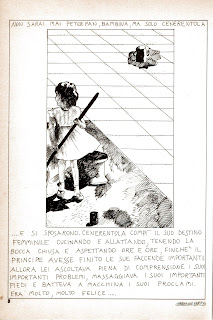 NON SARAI MAI PETER PAN, BAMBINA, MA SOLO CENERENTOLA
... E SI SPOSARONO. CENERENTOLA COMPÌ IL SUO DESTINO
FEMMINILE CUCINANDO E ALLATTANDO, TENENDO LA
BOCCA CHIUSA E ASPETTANDO ORE E ORE, FINCHE' IL
PRINCIPE AVESSE FINITO LE SUE FACCENDE IMPORTANTI
ALLORA, LEI ASCOLTAVA PIENA DI COMPRENSIONE I SUOI
IMPORTANTI PROBLEMI, MASSAGGIAVA I SUOI IMPORTANTI
PIEDI E BATTEVA A MACCHINA I SUOI PROCLAMI.
ERA MOLTO, MOLTO FELICE ....